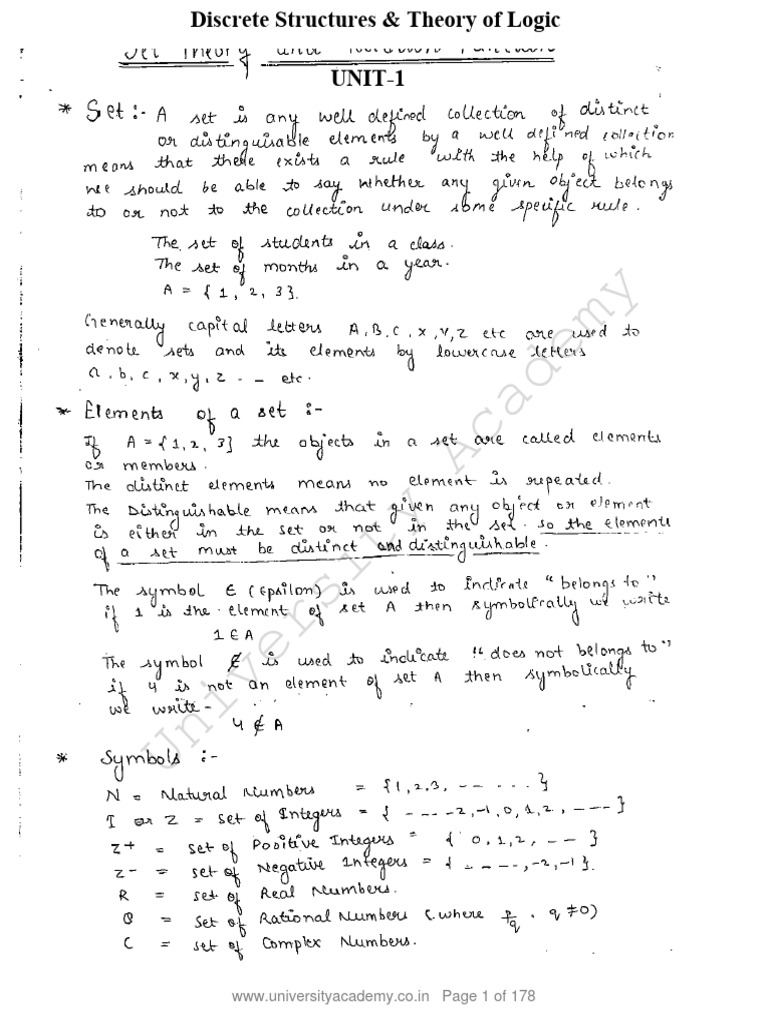 Discrete Structures & Theory of Logic
Set Theory and Relation Function
UNIT-1
* Set :- A set is any well defined collection of distinct
or distinguisable elements by a well defined collection
means that there exists a rule with the help of which
we should be able to say whether any given object belongs
to or not to the collection under some specific rule.
The set of students in a class.
The set of months in a year.
A = { 1, 2, 3}.
Generally capital letters A, B, C, X, Y, Z etc are used to
denote sets and its elements by lowercase letters
a, b, c, x, y, z - - etc.
* Elements of a set :-
If A = {1, 2, 3} the objects in a set are called elements
or members.
The distinct elements means no element is repeated.
The Distinguishable means that given any object or element
is either in the set or not in the set. so the elements
of a set must be distinct and distinguishable.
The symbol ∈ (Epsilon) is used to indicate "belongs to"
if 1 is the element of set A then symbolically we write
1 ∈ A
The symbol ∉ is used to indicate "does not belongs to"
if 4 is not an element of set A then symbolically
we write -
4 ∉ A
* Symbols :-
N = Natural Numbers = {1, 2, 3, -- ...}
I or Z = set of Integers = { - --- -2, -1, 0, 1, 2, --- }
Z+ = set of Positive Integers = { 0, 1, 2, -- }
Z- = set of Negative Integers = { - ---, -2, -1 }.
R = set of Real Numbers.
Q = Set of Rational Numbers (where p/q, q ≠ 0)
C = set of Complex Numbers.
University Academy
www.universityacademy.co.in Page 1 of 178